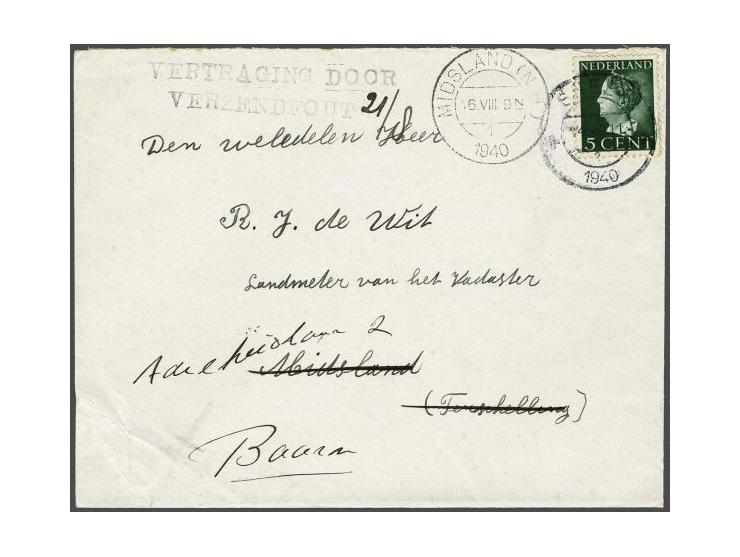 VERTRAGING DOOR
VERZENDFOUT
21/8
MIDSLAND
6.VIII 9N
1
1940
1940
NEDERLAND
5 CENT
Den weledelen Heer
R. J. de Wit
Landmeter van het Kadaster
Adelheidlaan 2
Midsland
(Terschelling)
Baarn